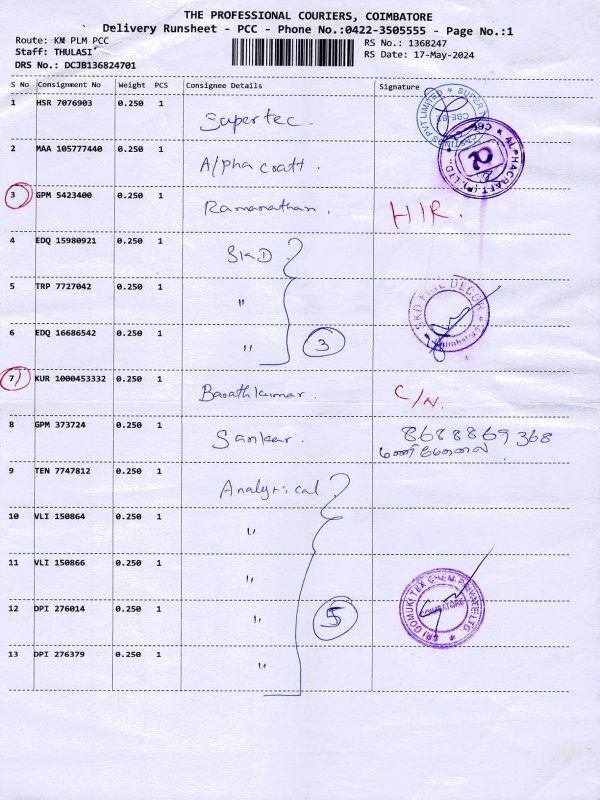 THE PROFESSIONAL COURIERS, COIMBATORE
Delivery Runsheet - PCC - Phone No.:0422-3505555 - Page No.:1
Route: KM PLM PCC
RS No.: 1368247
Staff: THULASI
RS Date: 17-May-2024
DRS No.: DCJB136824701
S No Consignment No Weight PCS Consignee Details Signature
1 HSR 7076903 0.250 1 Supertec.
2 MAA 105777440 0.250 1 Alpha craft.
3 GPM 5423400 0.250 1 Ramanathan. HIR.
4 EDQ 15980921 0.250 1 SKD
5 TRP 7727042 0.250 1 "
6 EDQ 16686542 0.250 1 " 3
7 KUR 1000453332 0.250 1 Barathkumar. C/N.
8 GPM 373724 0.250 1 Sankar. 8688869368
9 TEN 7747812 0.250 1 Analytical
10 VLI 150864 0.250 1 "
11 VLI 150866 0.250 1 "
12 DPI 276014 0.250 1 " 5
13 DPI 276379 0.250 1 "
SRI GOMUKI TEX CHEM PRIVATE LTD
COIMBATORE